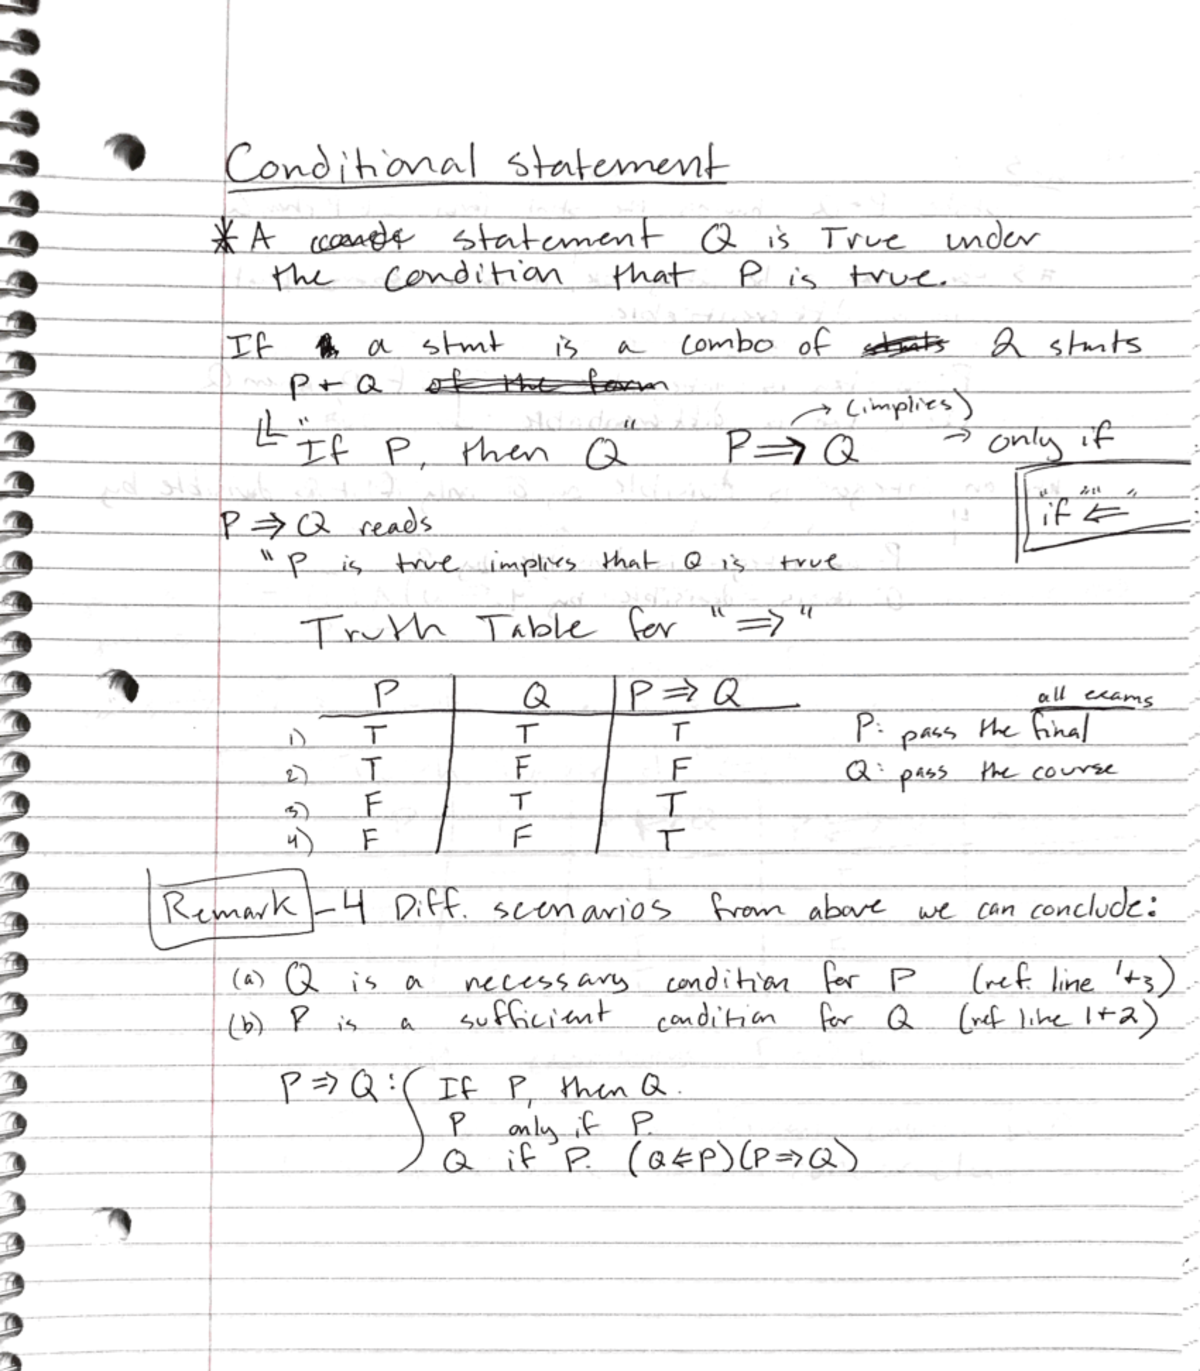 Conditional statement
* A statement Q is True under
the condition that P is true.
If a stmt is a combo of 2 stmts
P + Q of the form
(implies)
"If P, then Q" P ⇒ Q → only if
"if" "⇐"
P ⇒ Q reads
"P is true implies that Q is true
Truth Table for "⇒"
P Q P ⇒ Q all exams
1) T T T P: pass the final
2) T F F Q: pass the course
3) F T T
4) F F T
Remark - 4 Diff. scenarios from above we can conclude:
(a) Q is a necessary condition for P (ref. line 1+3)
(b) P is a sufficient condition for Q (ref line 1+2)
P ⇒ Q : If P, then Q.
P only if P.
Q if P. (Q ⇐ P) (P ⇒ Q)